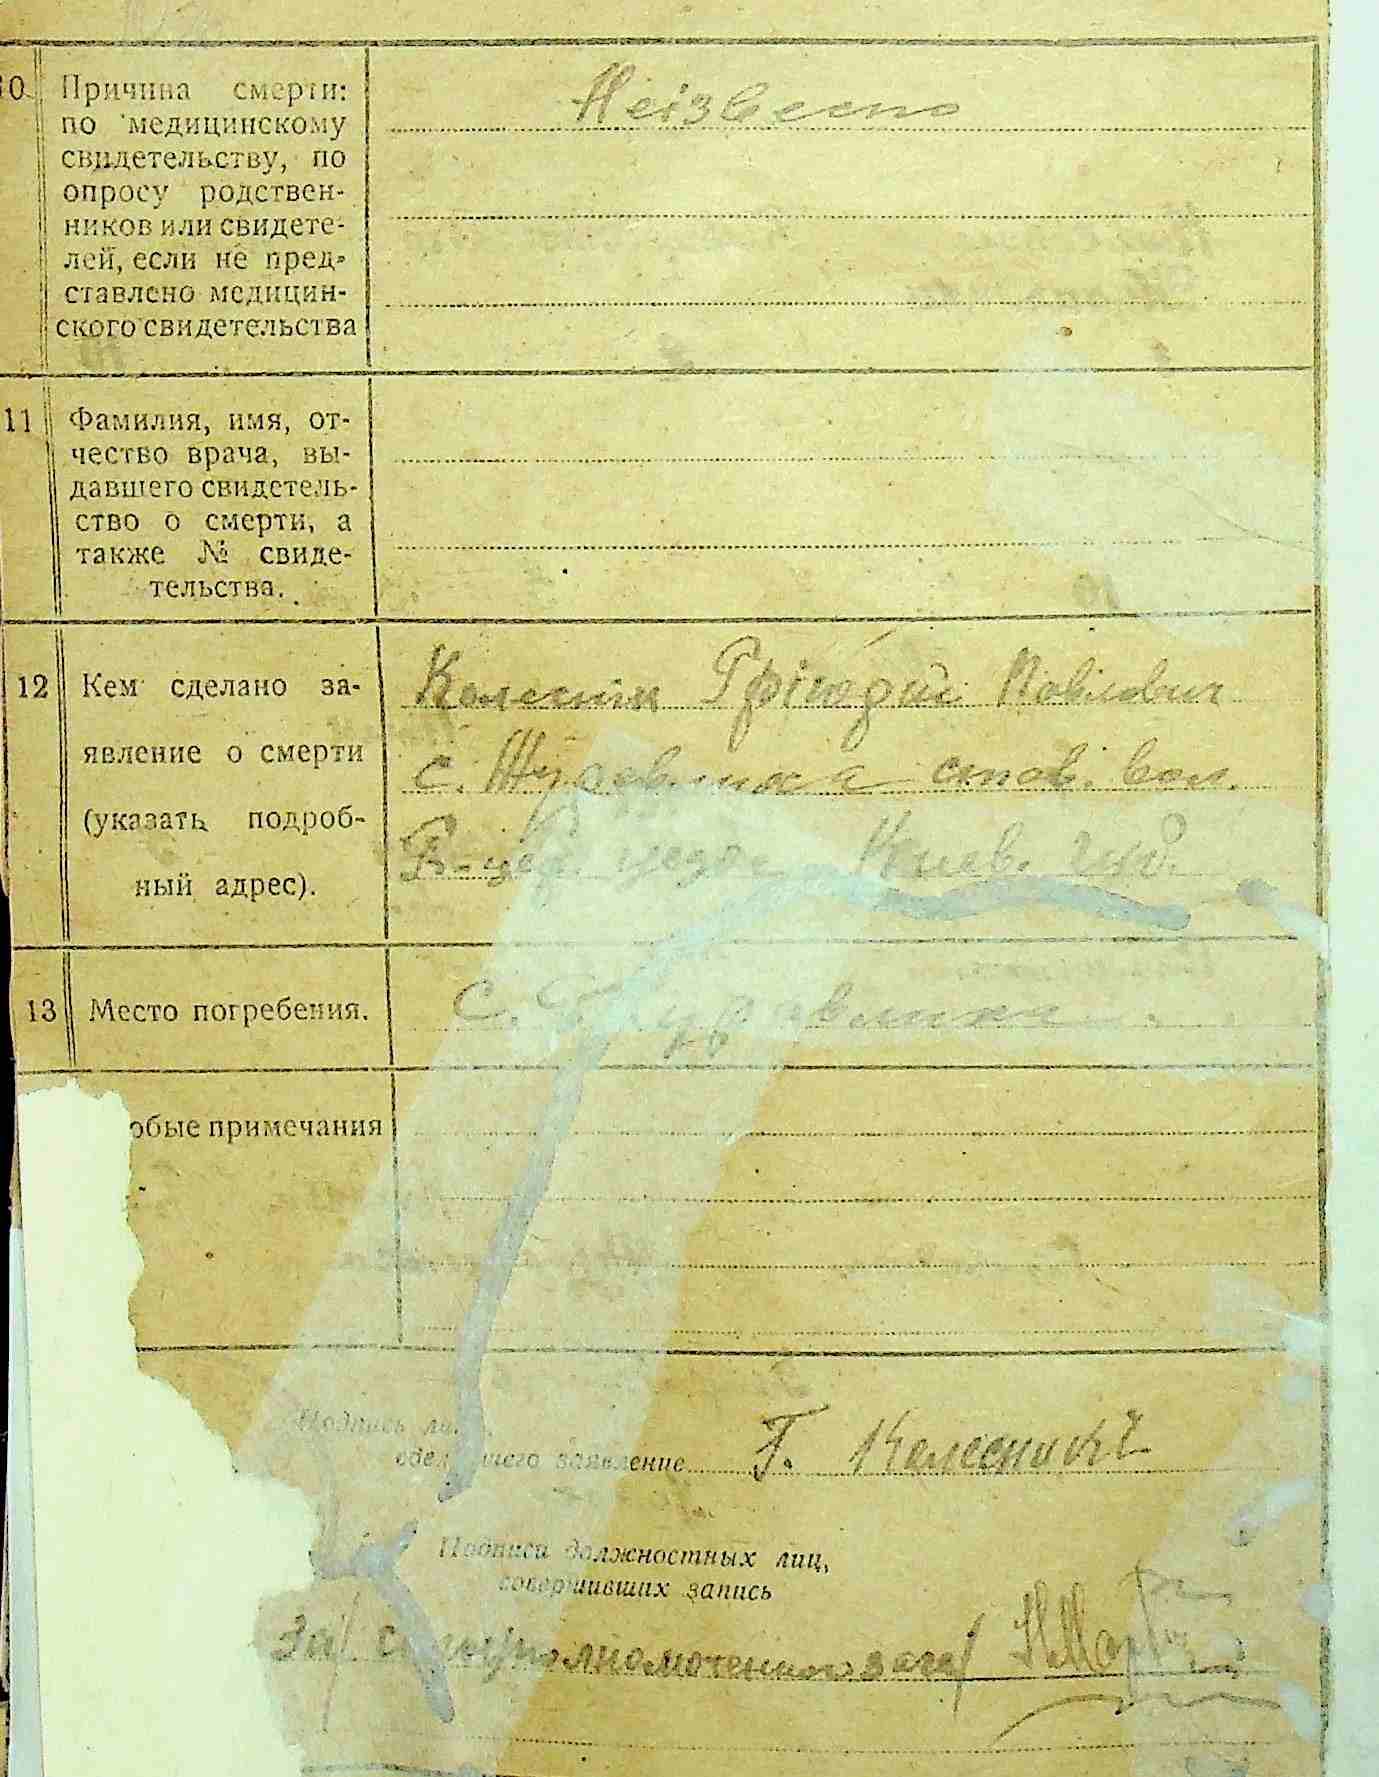 10. Причина смерти:
по медицинскому
свидетельству, по
опросу родствен-
ников или свидете-
лей, если не пред-
ставлено медицин-
ского свидетельства
Неізвестно
11 Фамилия, имя, от-
чество врача, вы-
давшего свидетель-
ство о смерти, а
также № свиде-
тельства.
12 Кем сделано за-
явление о смерти
(указать подроб-
ный адрес).
Колесник Павлович
с. став. вол.
Киев. губ.
13 Место погребения.
С. Журавлиха
обые примечания
Подпись ли
сдел шего заявление Г. Колесникъ
Подписи должностных лиц,
совершивших запись
За/